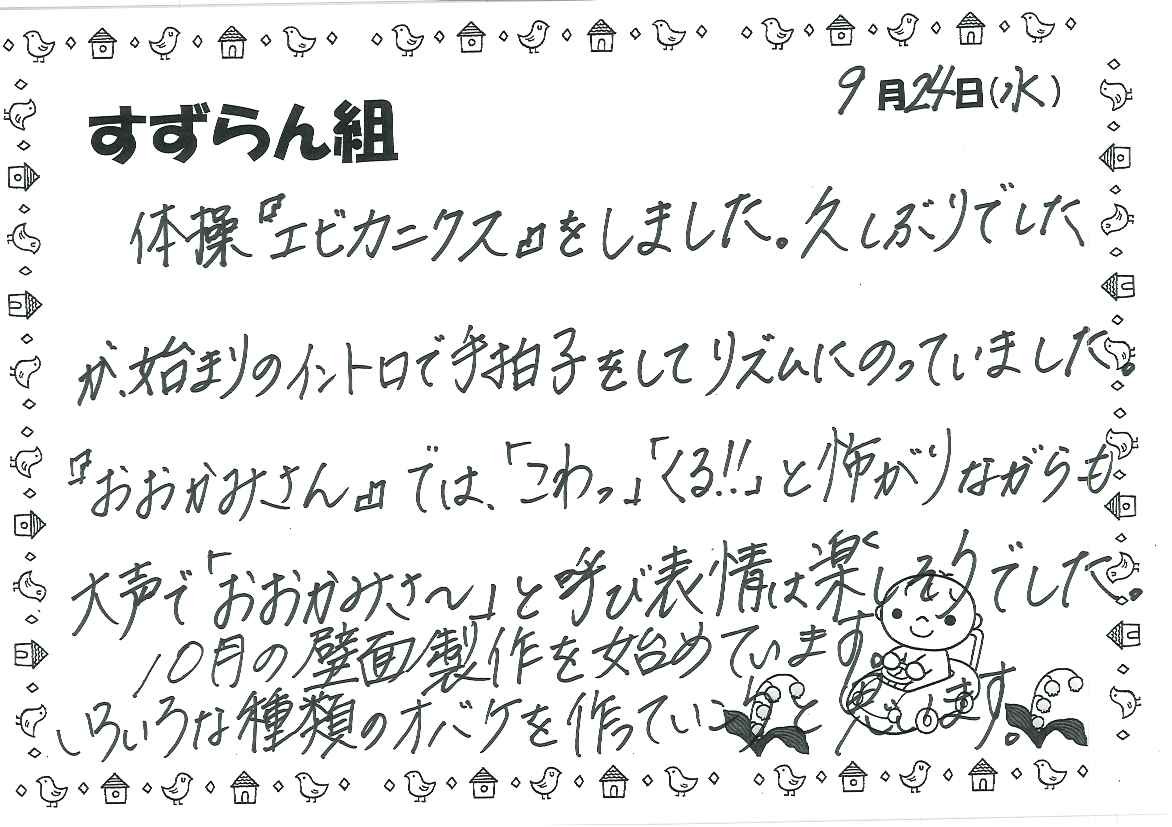 9月24日(水)
すずらん組
体操『エビカニクス』をしました。久しぶりでした
が、始まりのイントロで手拍子をしてリズムにのっていました。
『おおかみさん』では、「こわっ」「くる!!」と怖がりながらも
大声で「おおかみさ〜」と呼び表情は楽しそうでした。
10月の壁面製作を始めています。
いろいろな種類のオバケを作っていこうと思います。